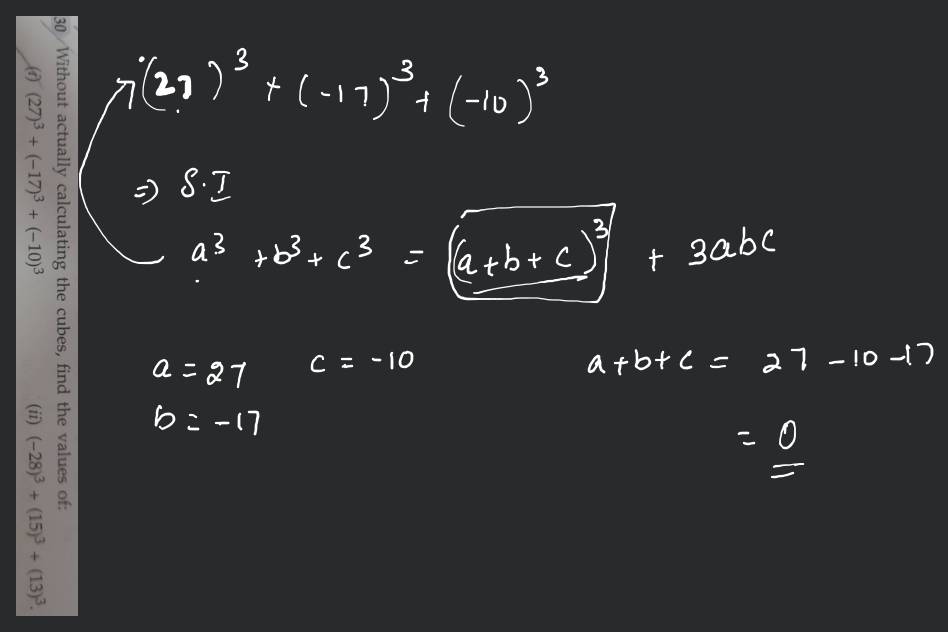 30 Without actually calculating the cubes, find the values of:
(i) (27)³ + (−17)³ + (−10)³
(ii) (−28)³ + (15)³ + (13)³.
(27)³ + (-17)³ + (-10)³
⇒ S.I
a³ + b³ + c³ = (a+b+c)³ + 3abc
a = 27 c = -10
b = -17
a+b+c = 27 -10 -17
= 0